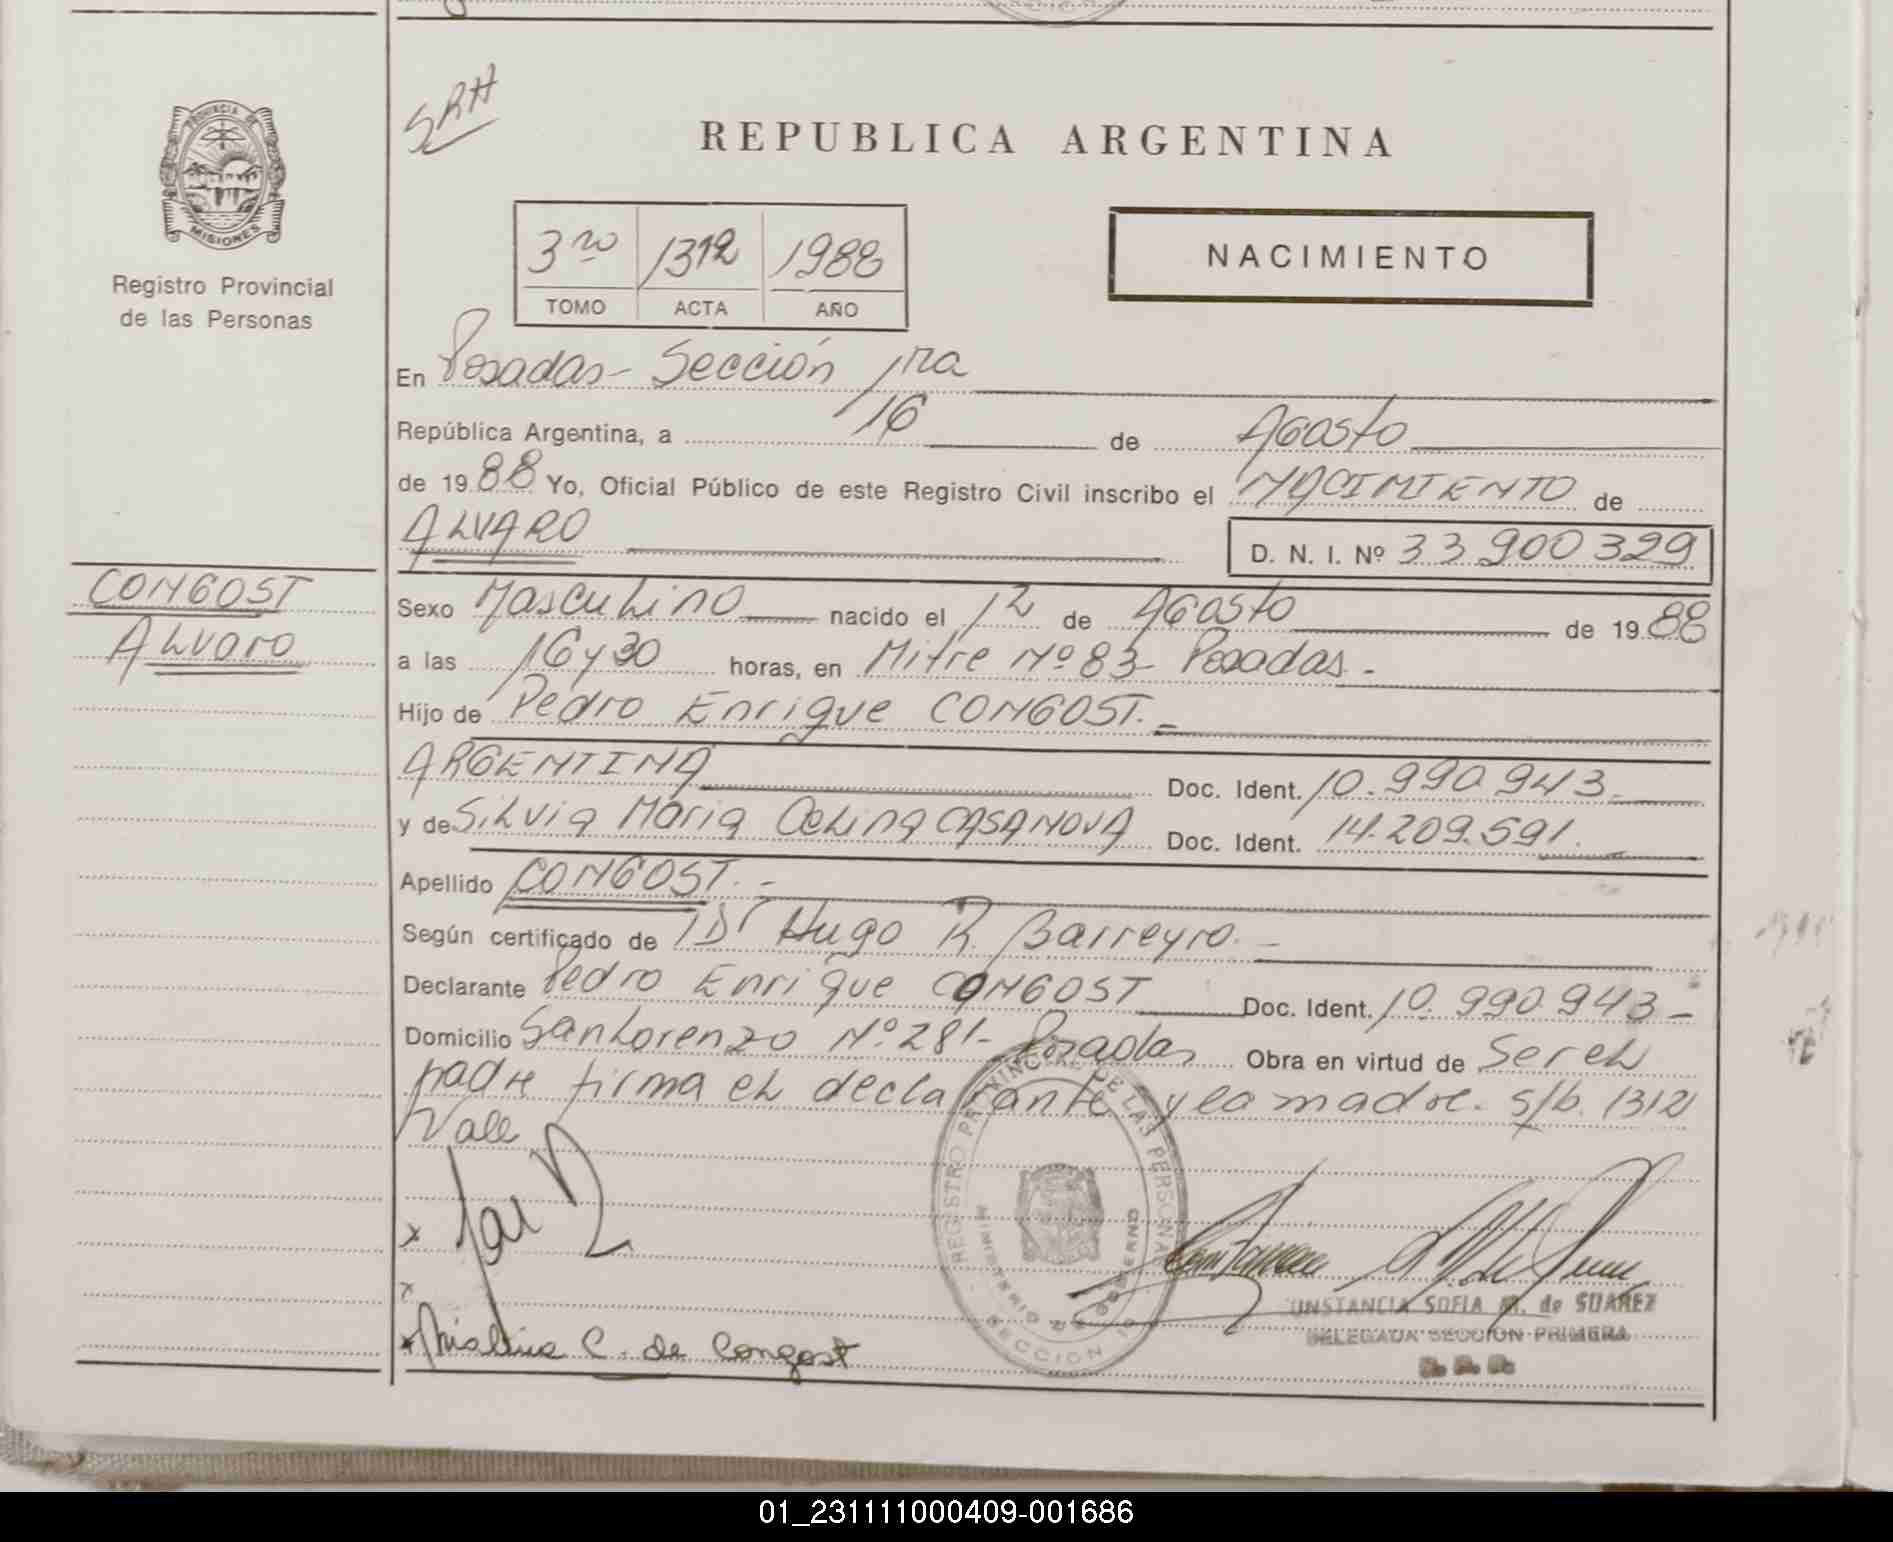 SRH
PROVINCIA DE
MISIONES
Registro Provincial
de las Personas
REPUBLICA ARGENTINA
3ro 1312 1988
TOMO ACTA AÑO
NACIMIENTO
En Posadas - Sección 1ra
República Argentina, a 16 de Agosto
de 1988 Yo, Oficial Público de este Registro Civil inscribo el NACIMIENTO de
ALVARO D. N. I. Nº 33900329
CONGOST
Alvaro
Sexo Masculino nacido el 12 de Agosto de 1988
a las 16 y 30 horas, en Mitre Nº 83 - Posadas -
Hijo de Pedro Enrique CONGOST. -
ARGENTINA Doc. Ident. 10.990.943 -
y de Silvia Maria Celina CASANOVA Doc. Ident. 14.209.591.
Apellido CONGOST. -
Según certificado de Dr Hugo R. Barreyro. -
Declarante Pedro Enrique CONGOST Doc. Ident. 10.990.943 -
Domicilio San Lorenzo Nº 281 - Posadas Obra en virtud de Ser el
padre firma el declarante y la madre. s/b. 1312
Vale
REGISTRO PROVINCIAL DE LAS PERSONAS
MINISTERIO DE GOBIERNO
SECCION 1
C. de Congost
CONSTANCIA SOFIA M. de SUAREZ
DELEGADA SECCION PRIMERA
01_231111000409-001686